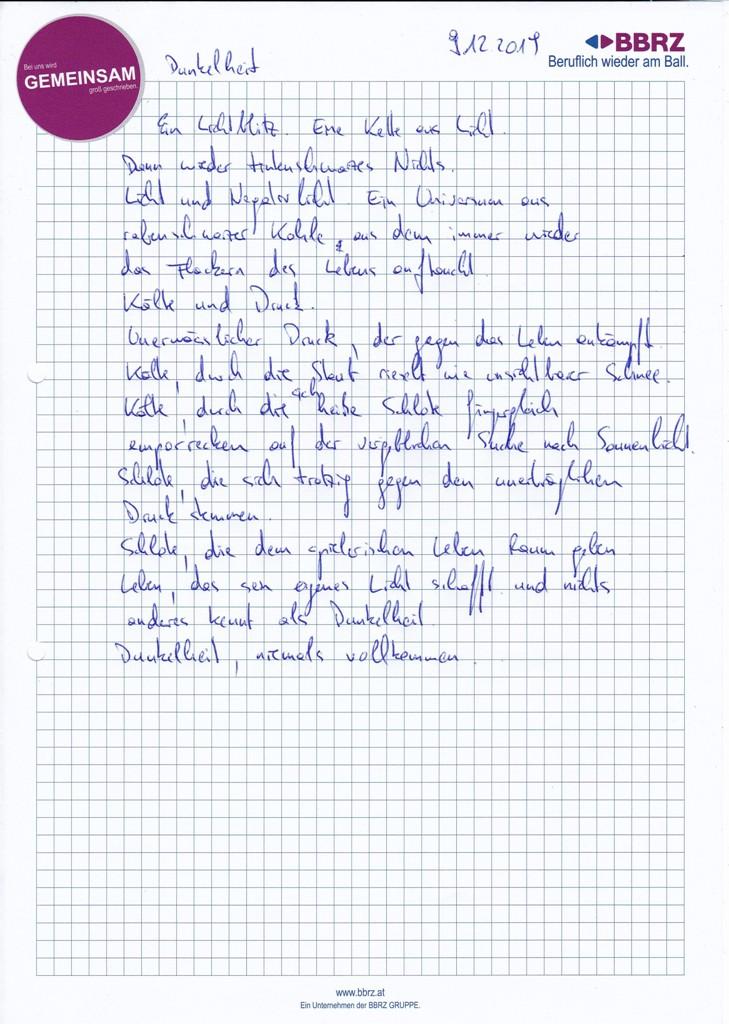 Bei uns wird
GEMEINSAM
groß geschrieben.
9.12.2019
BBRZ
Beruflich wieder am Ball.
Dunkelheit
Ein Lichtblitz. Eine Kette aus Licht.
Dann wieder tintenschwarzes Nichts.
Licht und Negativlicht. Ein Universum aus
rabenschwarzer Kohle, aus dem immer wieder
das Flackern des Lebens auftaucht.
Kälte und Druck.
Unermesslicher Druck, der gegen das Leben ankämpft.
Kälte, durch die Staub rieselt wie unsichtbarer Schnee.
Kälte, durch die sich heiße Schlote fingergleich
emporrecken auf der vergeblichen Suche nach Sonnenlicht.
Schlote, die sich trotzig gegen den unerträglichen
Druck stemmen.
Schlote, die dem spielerischen Leben Raum geben
Leben, das sein eigenes Licht schafft und nichts
anderes kennt als Dunkelheit
Dunkelheit, niemals vollkommen.
www.bbrz.at
Ein Unternehmen der BBRZ GRUPPE.